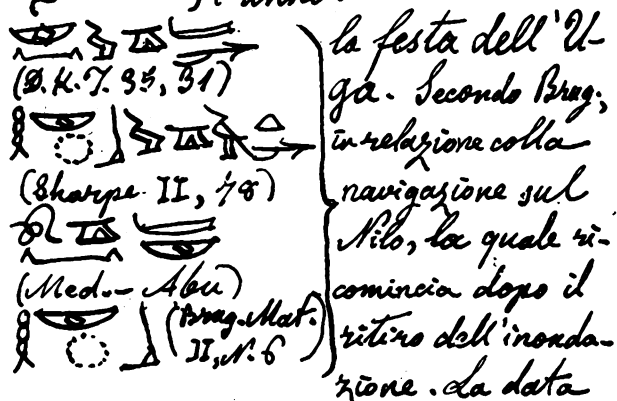 (D. K. J. 35, 31)
(Sharpe II, 78)
(Med.- Abu)
(Brug. Mat.
II, N. 6)
la festa dell'U-
ga. Secondo Brug.,
in relazione colla
navigazione sul
Nilo, la quale ri-
comincia dopo il
ritiro dell'inonda-
zione. La data